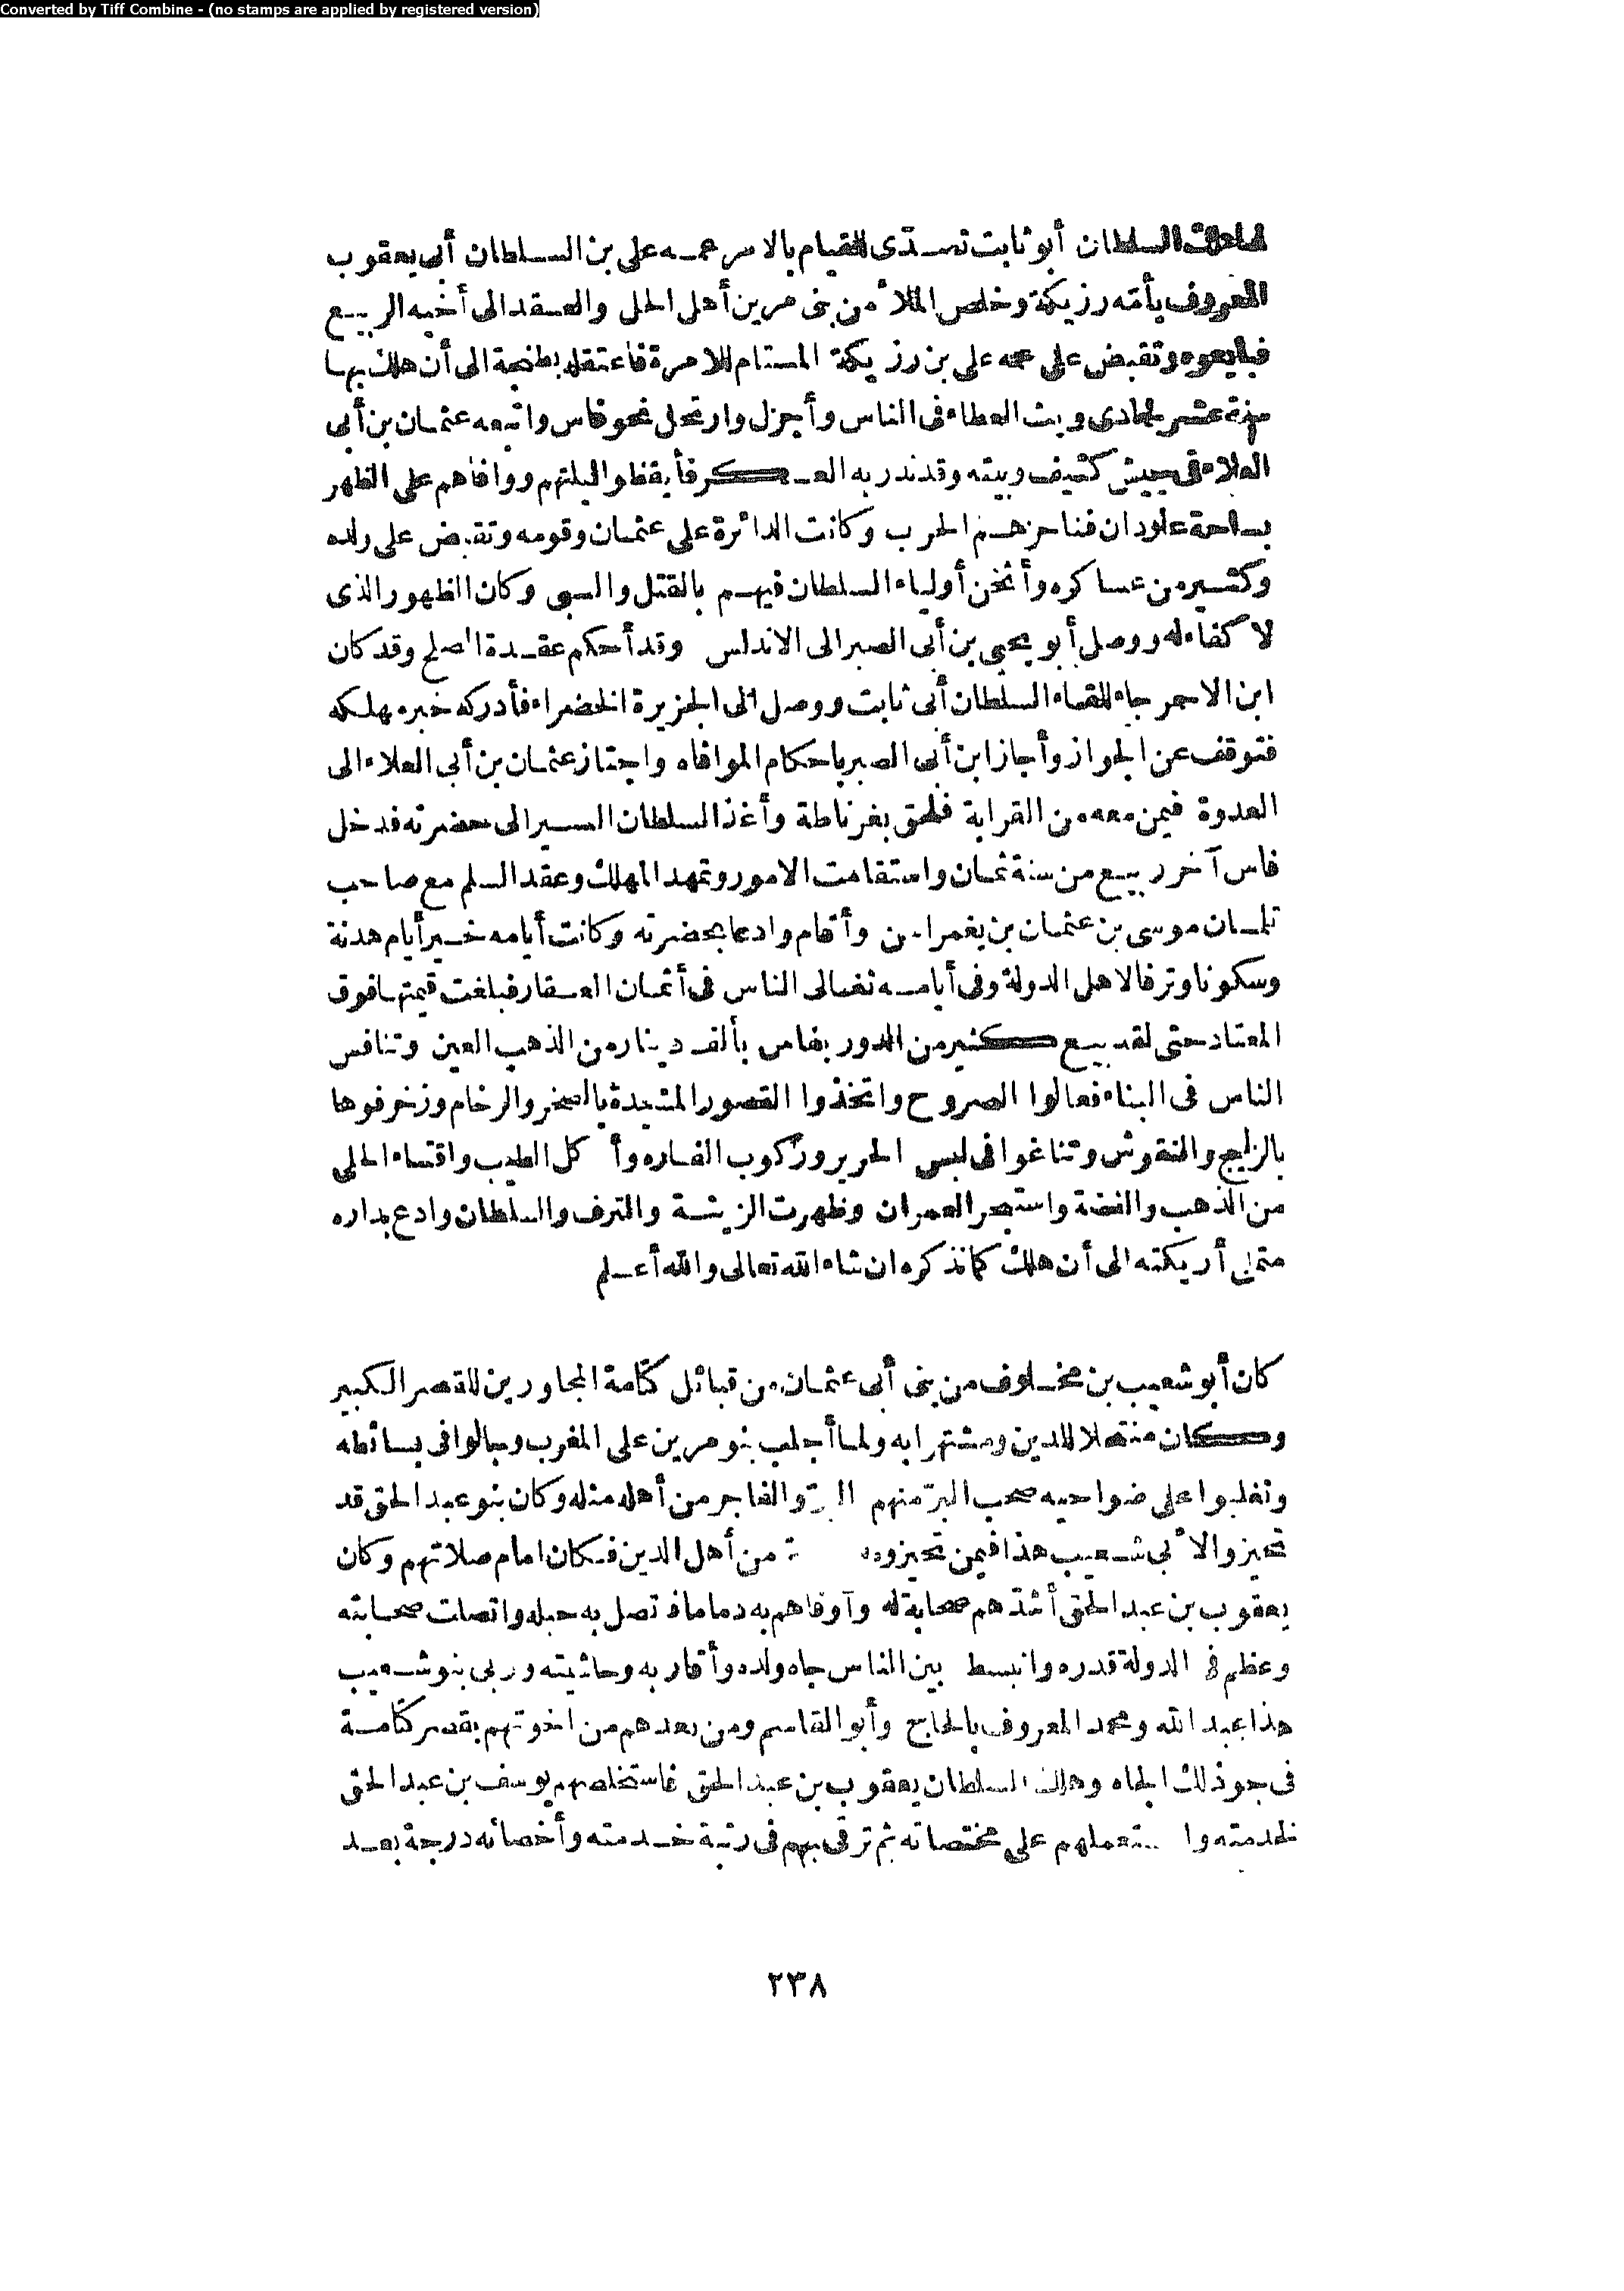 Converted by Tiff Combine - (no stamps are applied by registered version)
لما هلك السلطان أبو ثابت تصدّى للقيام بالامر عمه على بن السلطان أبى يعقوب
المعروف بأمّه رزيكة وخلص الملأ من بنى مرين أهل الحل والعقد الى أخيه الربيع
فبايعوه وتقبض على عمه على بن رزيكة المستام للامرة فاعتقله بطنجة الى أن هلك بها
سنة عشر لجمادى وبث العطاء فى الناس وأجزل وارتحل نحو فاس واتبعه عثمان بن أبى
العلاء فى جيش كثيف وبيته وقد نذر به العسكر فأيقظوا ليلتهم ووافاهم على الظهر
بساحة علودان فناجزهم الحرب وكانت الدائرة على عثمان وقومه وتقبض على ولده
وكثير من عساكره وأثخن أولياء السلطان فيهم بالقتل والسبى وكان الظهور الذى
لا كفاء له ووصل أبو يحيى بن أبى الصبر الى الاندلس وقد أحكم عقدة الصلح وقد كان
ابن الاحمر جاء للقاء السلطان أبى ثابت ووصل الى الجزيرة الخضراء فأدركه خبر مهلكه
فتوقف عن الجواز وأجاز ابن أبى الصبر باحكام الموافاه واجتاز عثمان بن أبى العلاء الى
العدوة فيمن معه من القرابة فلحق بغرناطة وأغذ السلطان السير الى حضرته فدخل
فاس آخر ربيع من سنة ثمان واستقامت الامور وتمهد الملك وعقد السلم مع صاحب
تلمسان موسى بن عثمان بن يغمراسن وأقام وادعا بحضرته وكانت أيامه خير أيام هدنة
وسكونا وترفا لاهل الدولة وفى أيامه تغالى الناس فى أثمان العقار فبلغت قيمتها فوق
المعتاد حتى لقد بيع كثير من الدور بفاس بألف دينار من الذهب العين وتنافس
الناس فى البناء فعالوا الصروح واتخذوا القصور المشيدة بالصخر والرخام وزخرفوها
بالزليج والنقوش وتناغوا فى لبس الحرير وركوب الفاره وأكل الطيب واقتناء الحلى
من الذهب والفضة واستبحر العمران وظهرت الزينة والترف والسلطان وادع بداره
متملئ أريكته الى أن هلك كما نذكره ان شاء الله تعالى والله أعلم
كان أبو شعيب بن مخلوف من بنى أبى عثمان من قبائل كتامة المجاورين للقصر الكبير
وكان منتحلا للدين ومشتهرا به ولما أجلب بنو مرين على المغرب وجالوا فى بسائطه
وتغلبوا على ضواحيه صحب البرّ منهم البرّ والفاجر من أهله مثله وكان بنو عبد الحق قد
تحيزوا لأبى شعيب هذا فيمن تحيزوه من أهل الدين فكان امام صلاتهم وكان
يعقوب بن عبد الحق أشدّهم صحابة له وآوفاهم به ذماما فاتصل به حبله واتصلت صحابته
وعظم فى الدولة قدره وانبسط بين الناس جاه ولده وأقاربه وحاشيته وربى بنو شعيب
هذا عبد الله ومحمد المعروف بالحاج وأبو القاسم ومن بعدهم من اخوتهم بقصر كتامة
فى جو ذلك الجاه وهلك السلطان يعقوب بن عبد الحق فاستخلصهم يوسف بن عبد الحق
لخدمته واستعملهم على مختصاته ثم ترقى بهم فى رتبة خدمته وأخصائه درجة بعد
٢٣٨